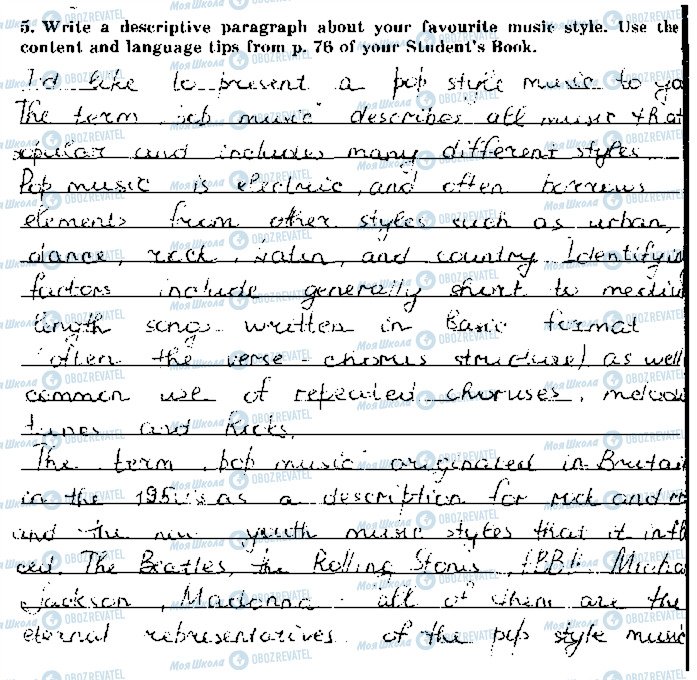 5. Write a descriptive paragraph about your favourite music style. Use the
content and language tips from p. 76 of your Student's Book.
I'd like to present a pop style music to yo
The term „pop music" describes all music that
opular and includes many different styles
Pop music is electric, and often borrows
elements from other styles such as urban,
dance, rock, latin, and country. Identifyin
factors include generally short to mediu
length song written in basic format
(often the verse - chorus structure) as well
common use of repeated choruses, melodi
tunes and
The term „pop music" originated in Britai
in the 1950's as a description for rock and ro
and the new youth music styles that it infl
ced. The Beatles, the Rolling Stones, ABBA, Micha
Jackson, Madonna - all of them are the
eternal representatives of the pop style music
Моя Школа OBOZREVATEL